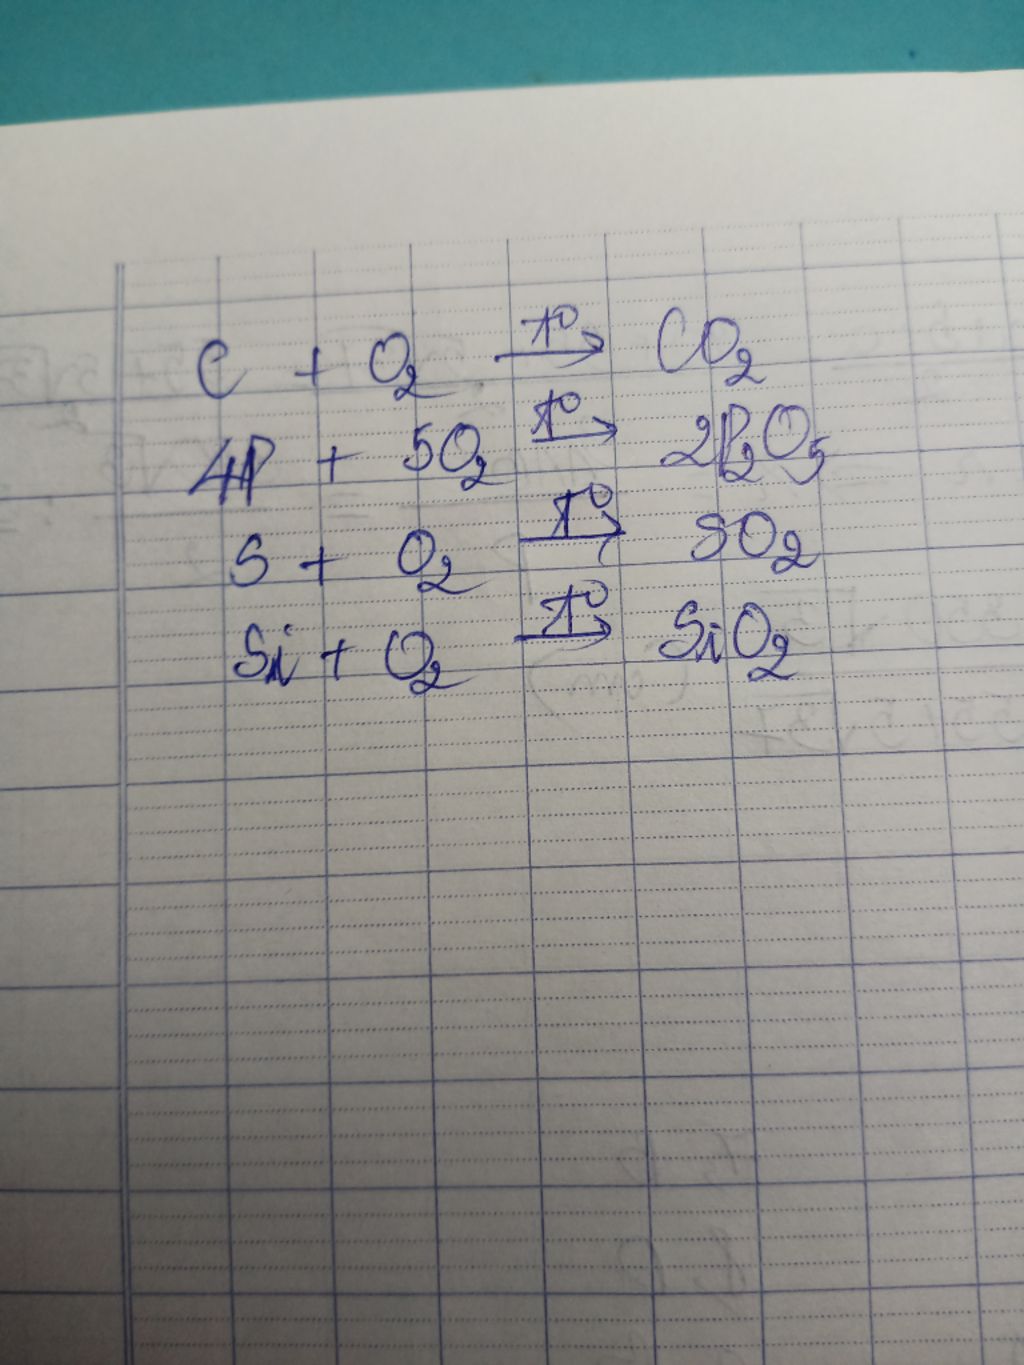 C + O₂ —t⁰→ CO₂
4P + 5O₂ —t⁰→ 2P₂O₅
S + O₂ —t⁰→ SO₂
Si + O₂ —t⁰→ SiO₂